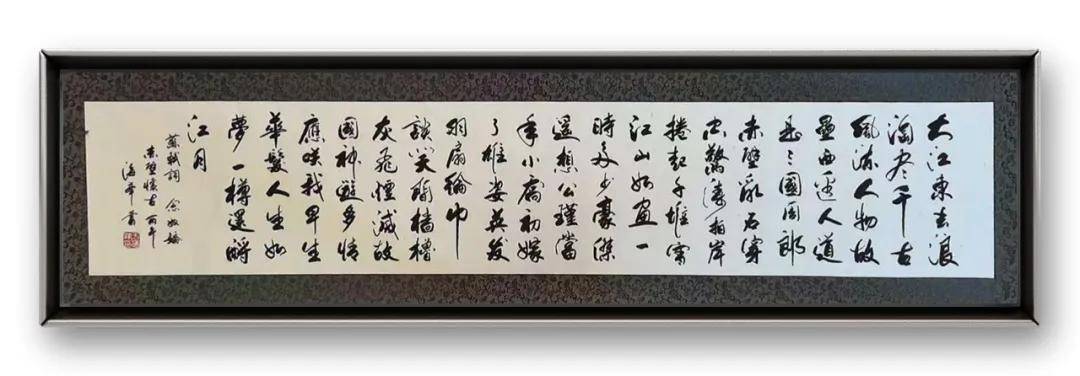 大江東去浪
淘尽千古
風流人物故
壘西邊人道
是三國周郎
赤壁亂石穿
空驚濤拍岸
捲起千堆雪
江山如畫一
時多少豪傑
遥想公瑾當
年小喬初嫁
了雄姿英发
羽扇綸巾
談笑間檣櫓
灰飛煙滅故
國神遊多情
應笑我早生
華髮人生如
夢一樽還酹
江月
蘇軾詞 念奴嬌
赤壁懷古 丙午
海 書